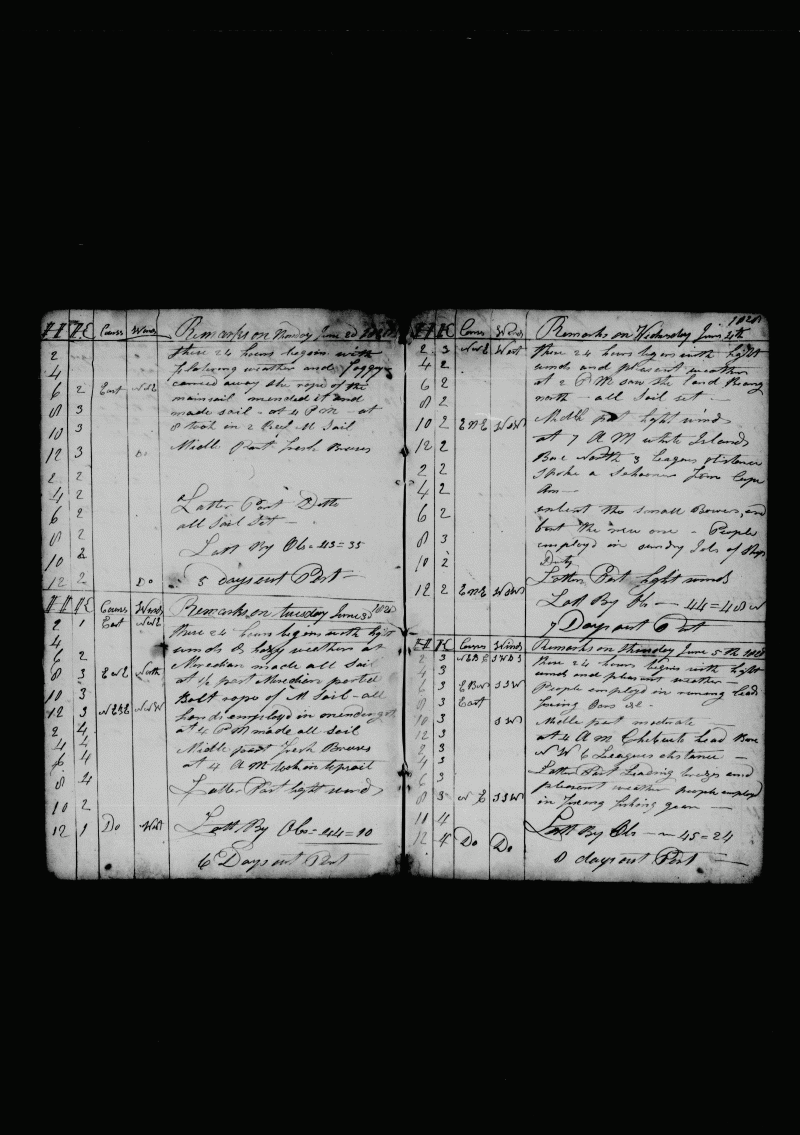 H H K Cours Winds Remarks on Monday June 2d 1828
2 these 24 hours begins with
4 weather and foggy
6 2 East carried away the rope of the
8 3 mainsail mended it and
made sail - at 4 P M - at
10 3 8 took in 2 Reef M Sail
12 3 Do Middle Part fresh Breeses
2 2
4 2 Latter Part Ditto
6 2 all Sail Set -
8 2
10 2 Latt By Obs = 43 = 35
12 2 Do 5 days out Port -
H H K Cours Winds Remarks on tuesday June 3d 1828
2 1 East these 24 hours begins with light
4 winds & hazy weather at
6 2 Meredian made all Sail
8 3 North at ½ past Meredian parted
10 3 Bolt rope of M Sail - all
12 3 hands employd in mending it
2 4 at 4 P M made all sail
4 4 Middle part fresh Breeses
6 4 at 4 A M took in
8 4 Latter Part light winds
10 2
12 1 Do West Latt By Obs = 44 = 10
6 Days out Port
1828
H H K Cours Winds Remarks on Wednesday June 4th
2 3 West these 24 hours begins with light
4 2 winds and plesent weather
6 2 at 2 P M saw the land
8 2 north - all Sail set -
10 2 E N E Middle part light winds
12 2 at 7 A M white Islands
2 2 Bore North 3 Leagues distance
4 2 Spoke a from Cape
Ann -
6 2 the small Bower and
8 3 bent the new one - People
employd in sundry Jobs of Ships
10 2 Duty
Latter Part light winds
12 2 E N E Latt By Obs - 44 = 48 N
7 Days out Port
H H K Cours Winds Remarks on thursday June 5th 1828
2 3 these 24 hours begins with light
4 3 winds and plesent weather -
6 3 S S W People employd in
8 3 East
10 3 S W Middle part moderate -
12 3 at 4 A M head Bore
2 3 N W 6 Leagues distance -
4 3 Latter Part and
6 3 plesent weather people employd
8 3 N E S S W in fishing gear -
10 4
12 4 Do Do Latt By Obs - 45 = 24
8 days out Port -